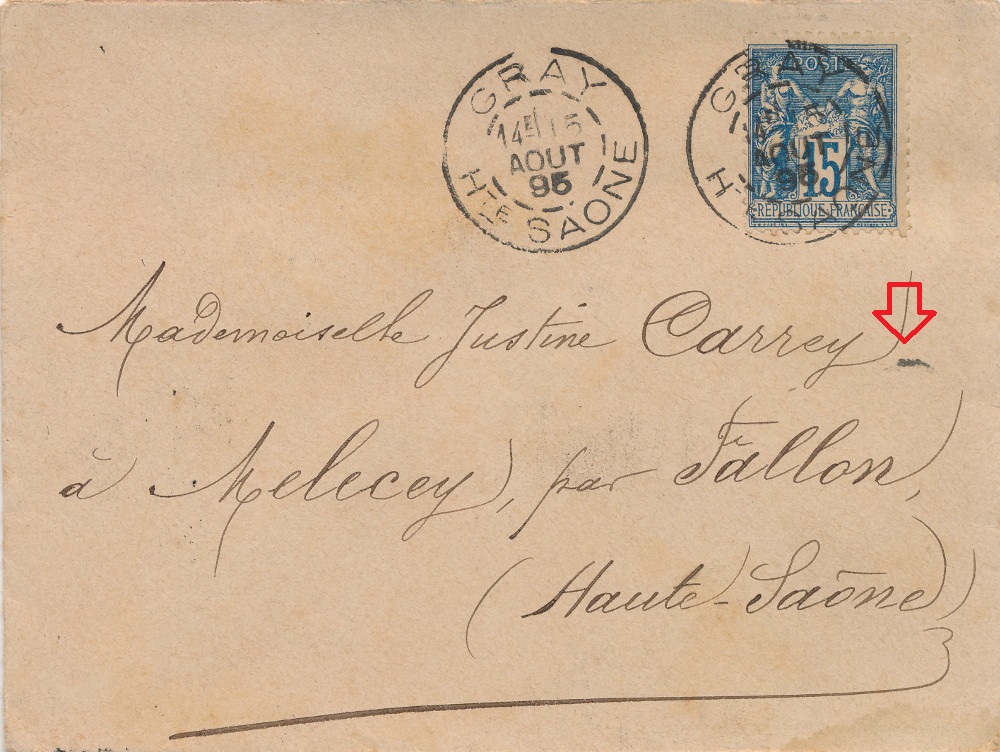 GRAY
14E 15
AOUT
95
HTE SAONE
GRAY
AOUT
95
POSTES
15
REPUBLIQUE FRANÇAISE
Mademoiselle Justine Carrey
à Melecey, par Fallon,
(Haute-Saône)